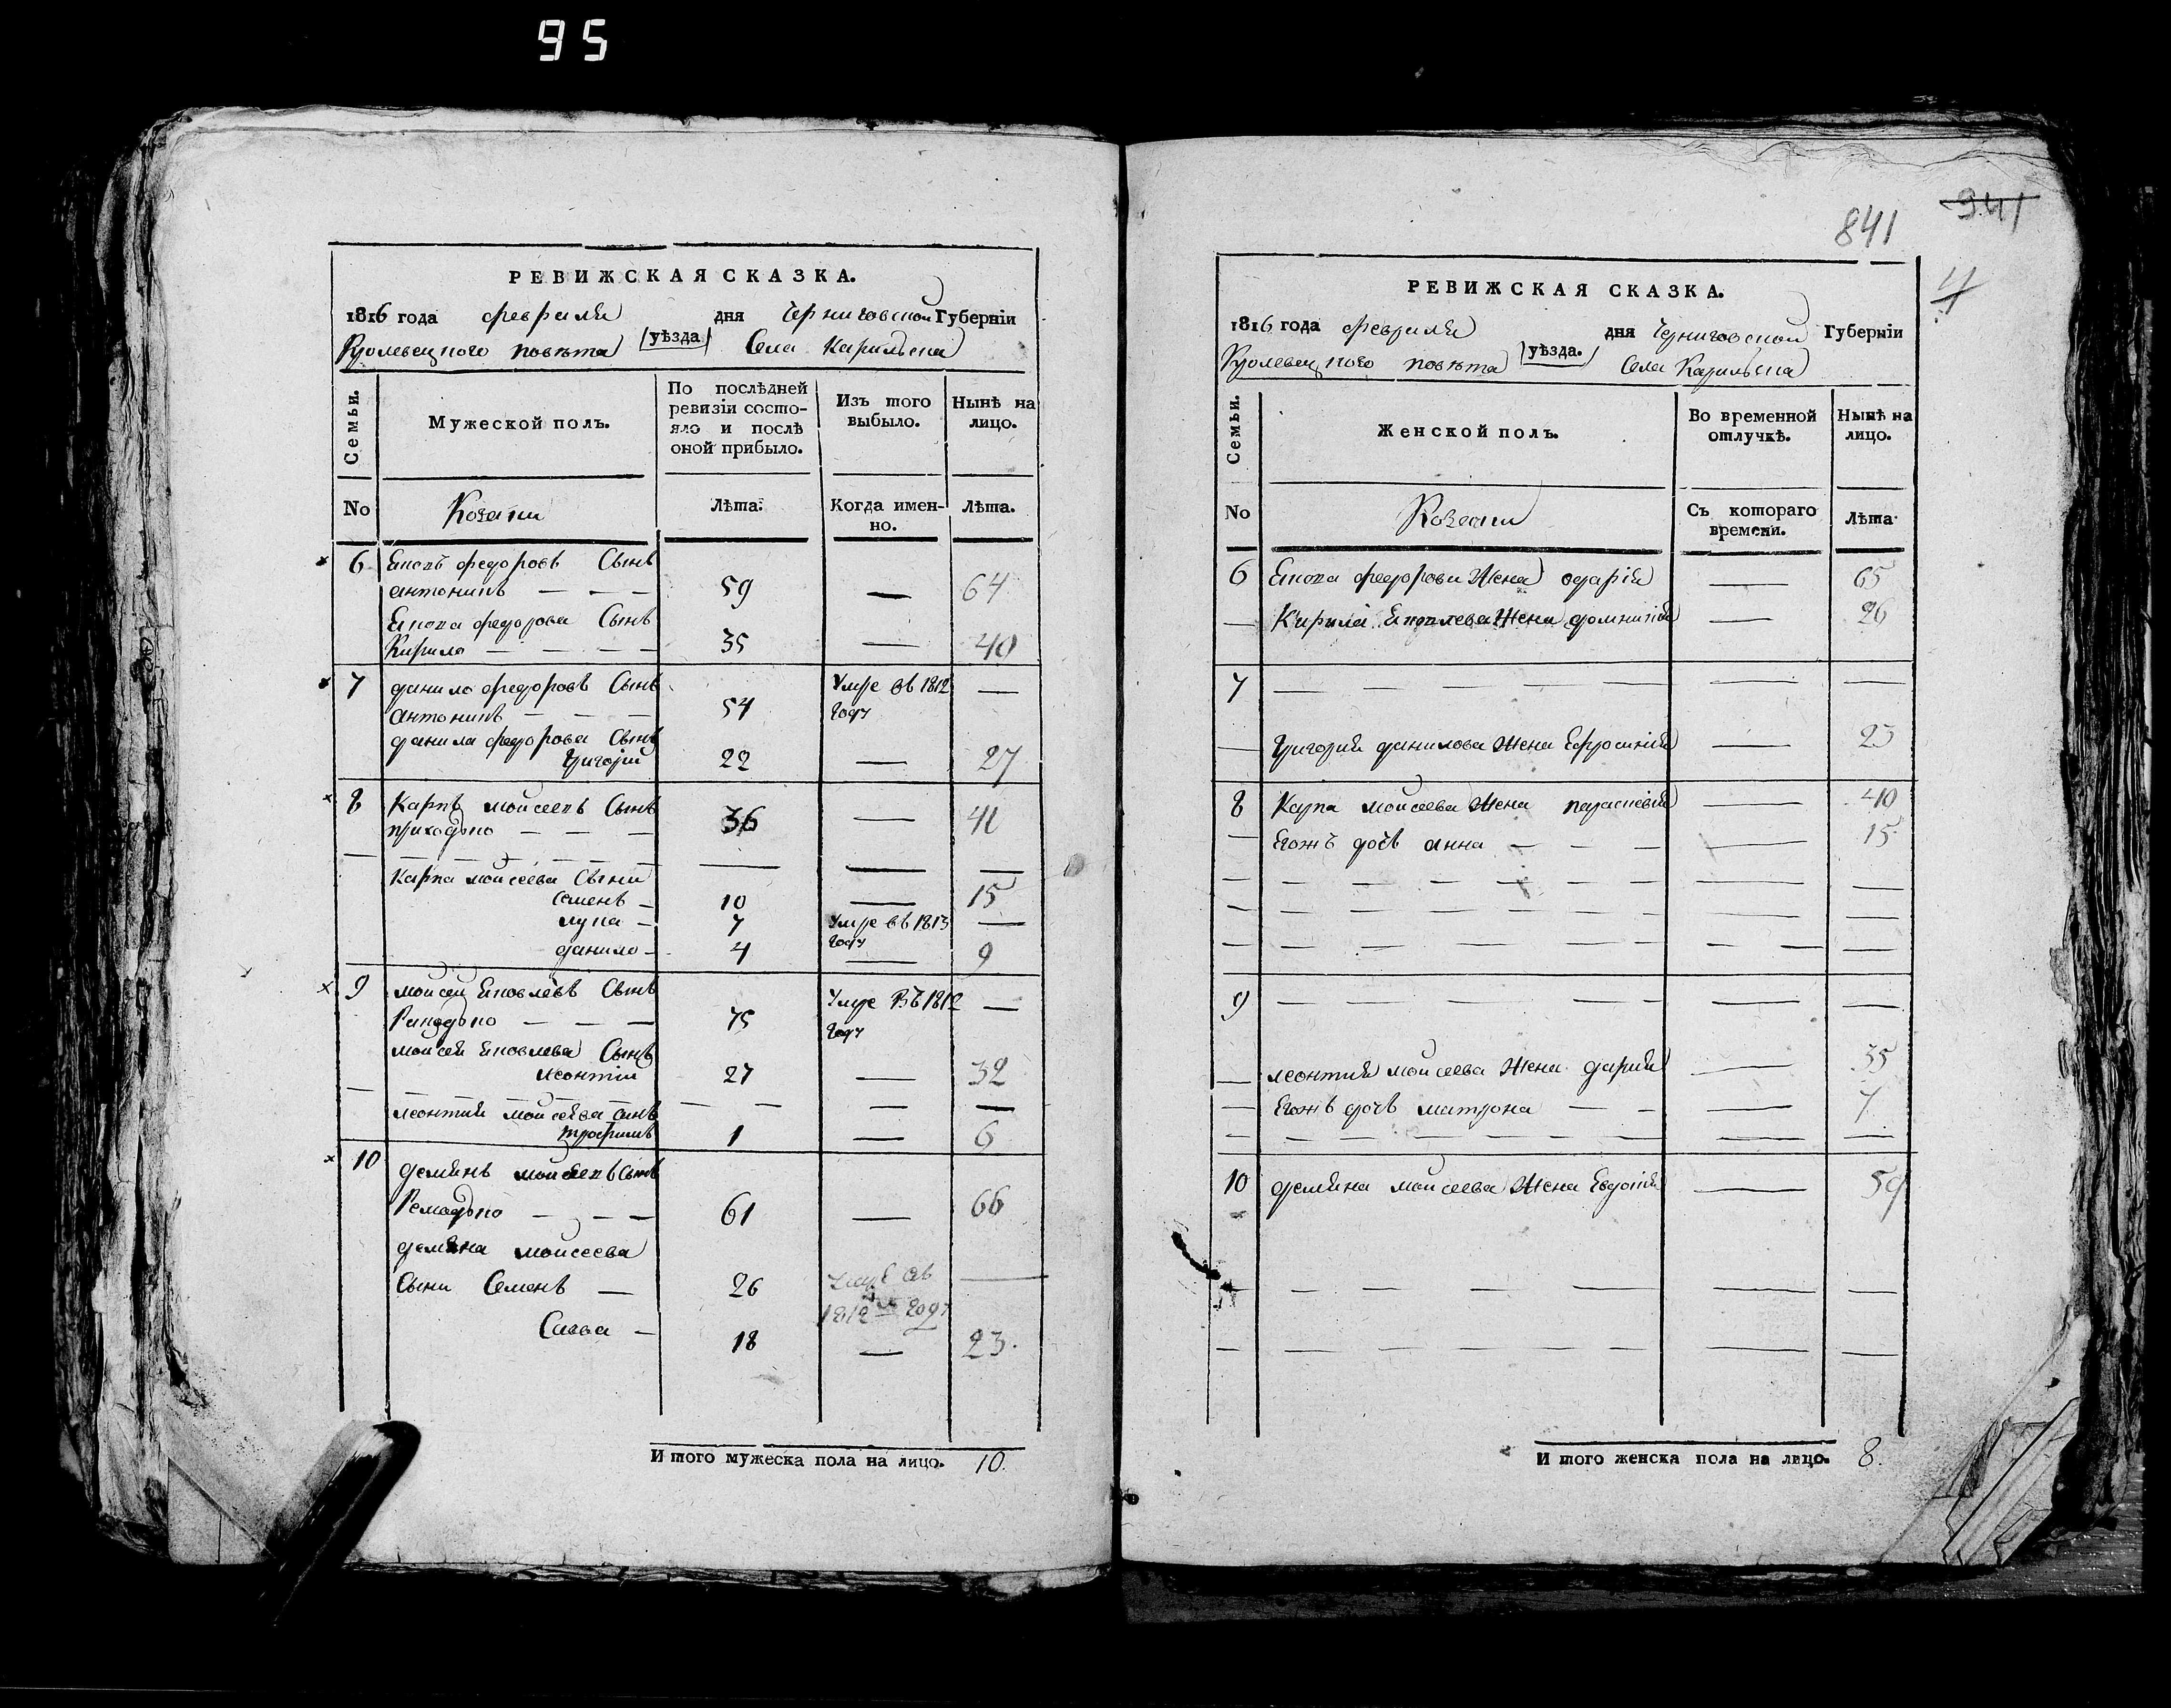 95
РЕВИЖСКАЯ СКАЗКА.
1816 года февраля дня Черниговской Губернїи
Кролевецкого повѣта уѣзда Села Карильска
Семьи.
Мужеской полъ.
По послѣдней ревизїи состо-
яло и послѣ
оной прибыло.
Изъ того
выбыло.
Нынѣ на
лицо.
No
Козаки
Лѣта.
Когда имен-
но.
Лѣта.
6 Якопъ федоровъ Сынъ
антонинъ — — — 59 — 64
Якопа федорова Сынъ
Кирило — — — — 35 — 40
7 данило федоровъ Сынъ Умре въ 1812 —
антонинъ — — — 54 году
данила федорова Сынъ
Григорій 22 — 27
8 Карпъ моисеевъ Сынъ
приходко — — — 36 — 41
Карпа моисеева Сыни
Семенъ — 10 — 15
лупа — 7 Умре въ 1813 —
году
данило — 4 — 9
9 моисей Яковлевъ Сынъ Умре въ 1812 —
— — — 75 году
моисея Яковлева Сынъ
леонтій 27 — 32
леонтия моисеева сынъ
трофимъ 1 — 6
10 демянъ моисеевъ Сынъ
— — — 61 — 66
демяна моисеева
Сыни Семенъ — 26 умре въ —
1812м году
Савва — 18 — 23.
И того мужеска пола на лицо. 10.
841
941
4
РЕВИЖСКАЯ СКАЗКА.
1816 года февраля дня Черниговской Губернїи
Кролевецкого повѣта уѣзда. Села Карильска
Семьи.
Женской полъ.
Во временной
отлучкѣ.
Нынѣ на
лицо.
No
Козаки
Съ котораго
времени.
Лѣта
6 Якопа федорова Жена одарія — 65
— Кирила Якоплева Жена домникия — 26
7 — — — — — — —
— Григория данилова Жена Ефросинія — 23
8 Карпа моисеева Жена параскевія — 40
— Егожъ дочь анна — — — — 15
9 — — — — — — —
— леонтия моисеева Жена дария — 35
— Егожъ дочь матрона — — — 7
10 демяна моисеева Жена Евдокия — 59
И того женска пола на лицо. 8.